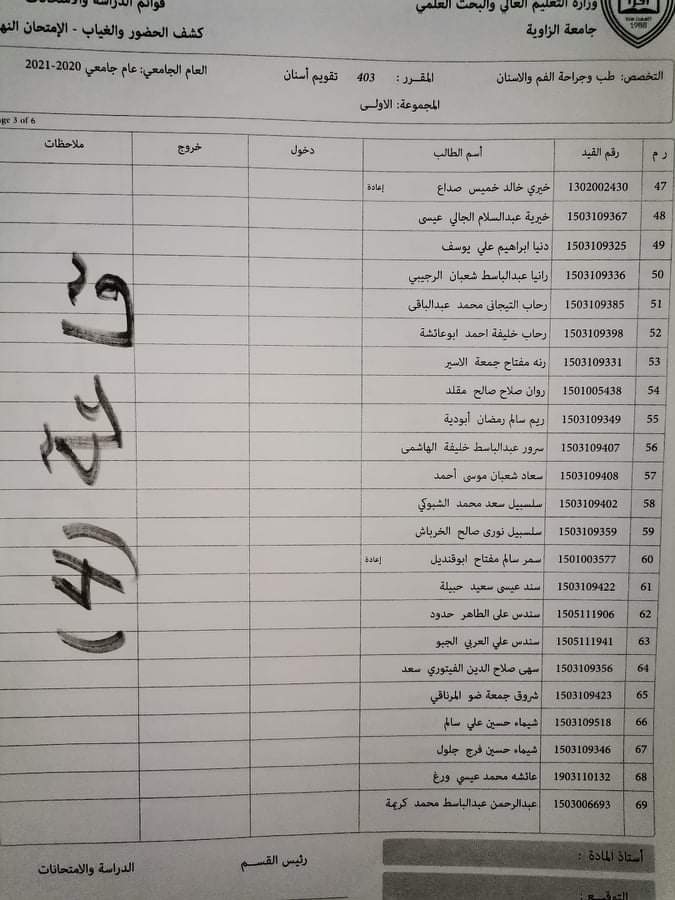 وزارة التعليم العالي والبحث العلمي
قوائم الدراسة والامتحانات
جامعة الزاوية
كشف الحضور والغياب - الإمتحان
1988
التخصص: طب وجراحة الفم والاسنان
المقرر : 403 تقويم أسنان
العام الجامعي: عام جامعي 2020-2021
المجموعة: الاولى
Page 3 of 6
ر م رقم القيد أسم الطالب دخول خروج ملاحظات
47 1302002430 خيري خالد خميس صداع إعادة
48 1503109367 خيرية عبدالسلام الجالي عيسى
49 1503109325 دنيا ابراهيم علي يوسف
50 1503109336 رانيا عبدالباسط شعبان الرجيبي
51 1503109385 رحاب التيجانى محمد عبدالباقى
52 1503109398 رحاب خليفة احمد ابوعائشة
53 1503109331 رنه مفتاح جمعة الاسير
54 1501005438 روان صلاح صالح مقلد
55 1503109349 ريم سالم رمضان أبودية
56 1503109407 سرور عبدالباسط خليفة الهاشمى
57 1503109408 سعاد شعبان موسى أحمد
58 1503109402 سلسبيل سعد محمد الشبوكي
59 1503109359 سلسبيل نورى صالح الخرباش
60 1501003577 سمر سالم مفتاح ابوقنديل إعادة
61 1503109422 سند عيسى سعيد حبيلة
62 1505111906 سندس على الطاهر حدود
63 1505111941 سندس علي العربي الجبو
64 1503109356 سهى صلاح الدين الفيتوري سعد
65 1503109423 شروق جمعة ضو المرناقي
66 1503109518 شيماء حسين علي سالم
67 1503109346 شيماء حسين فرج جلول
68 1903110132 عائشه محمد عيسي ورغ
69 1503006693 عبدالرحمن عبدالباسط محمد كريمة
(4)
أستاذ المادة :
رئيس القسم
الدراسة والامتحانات
التوقيع :